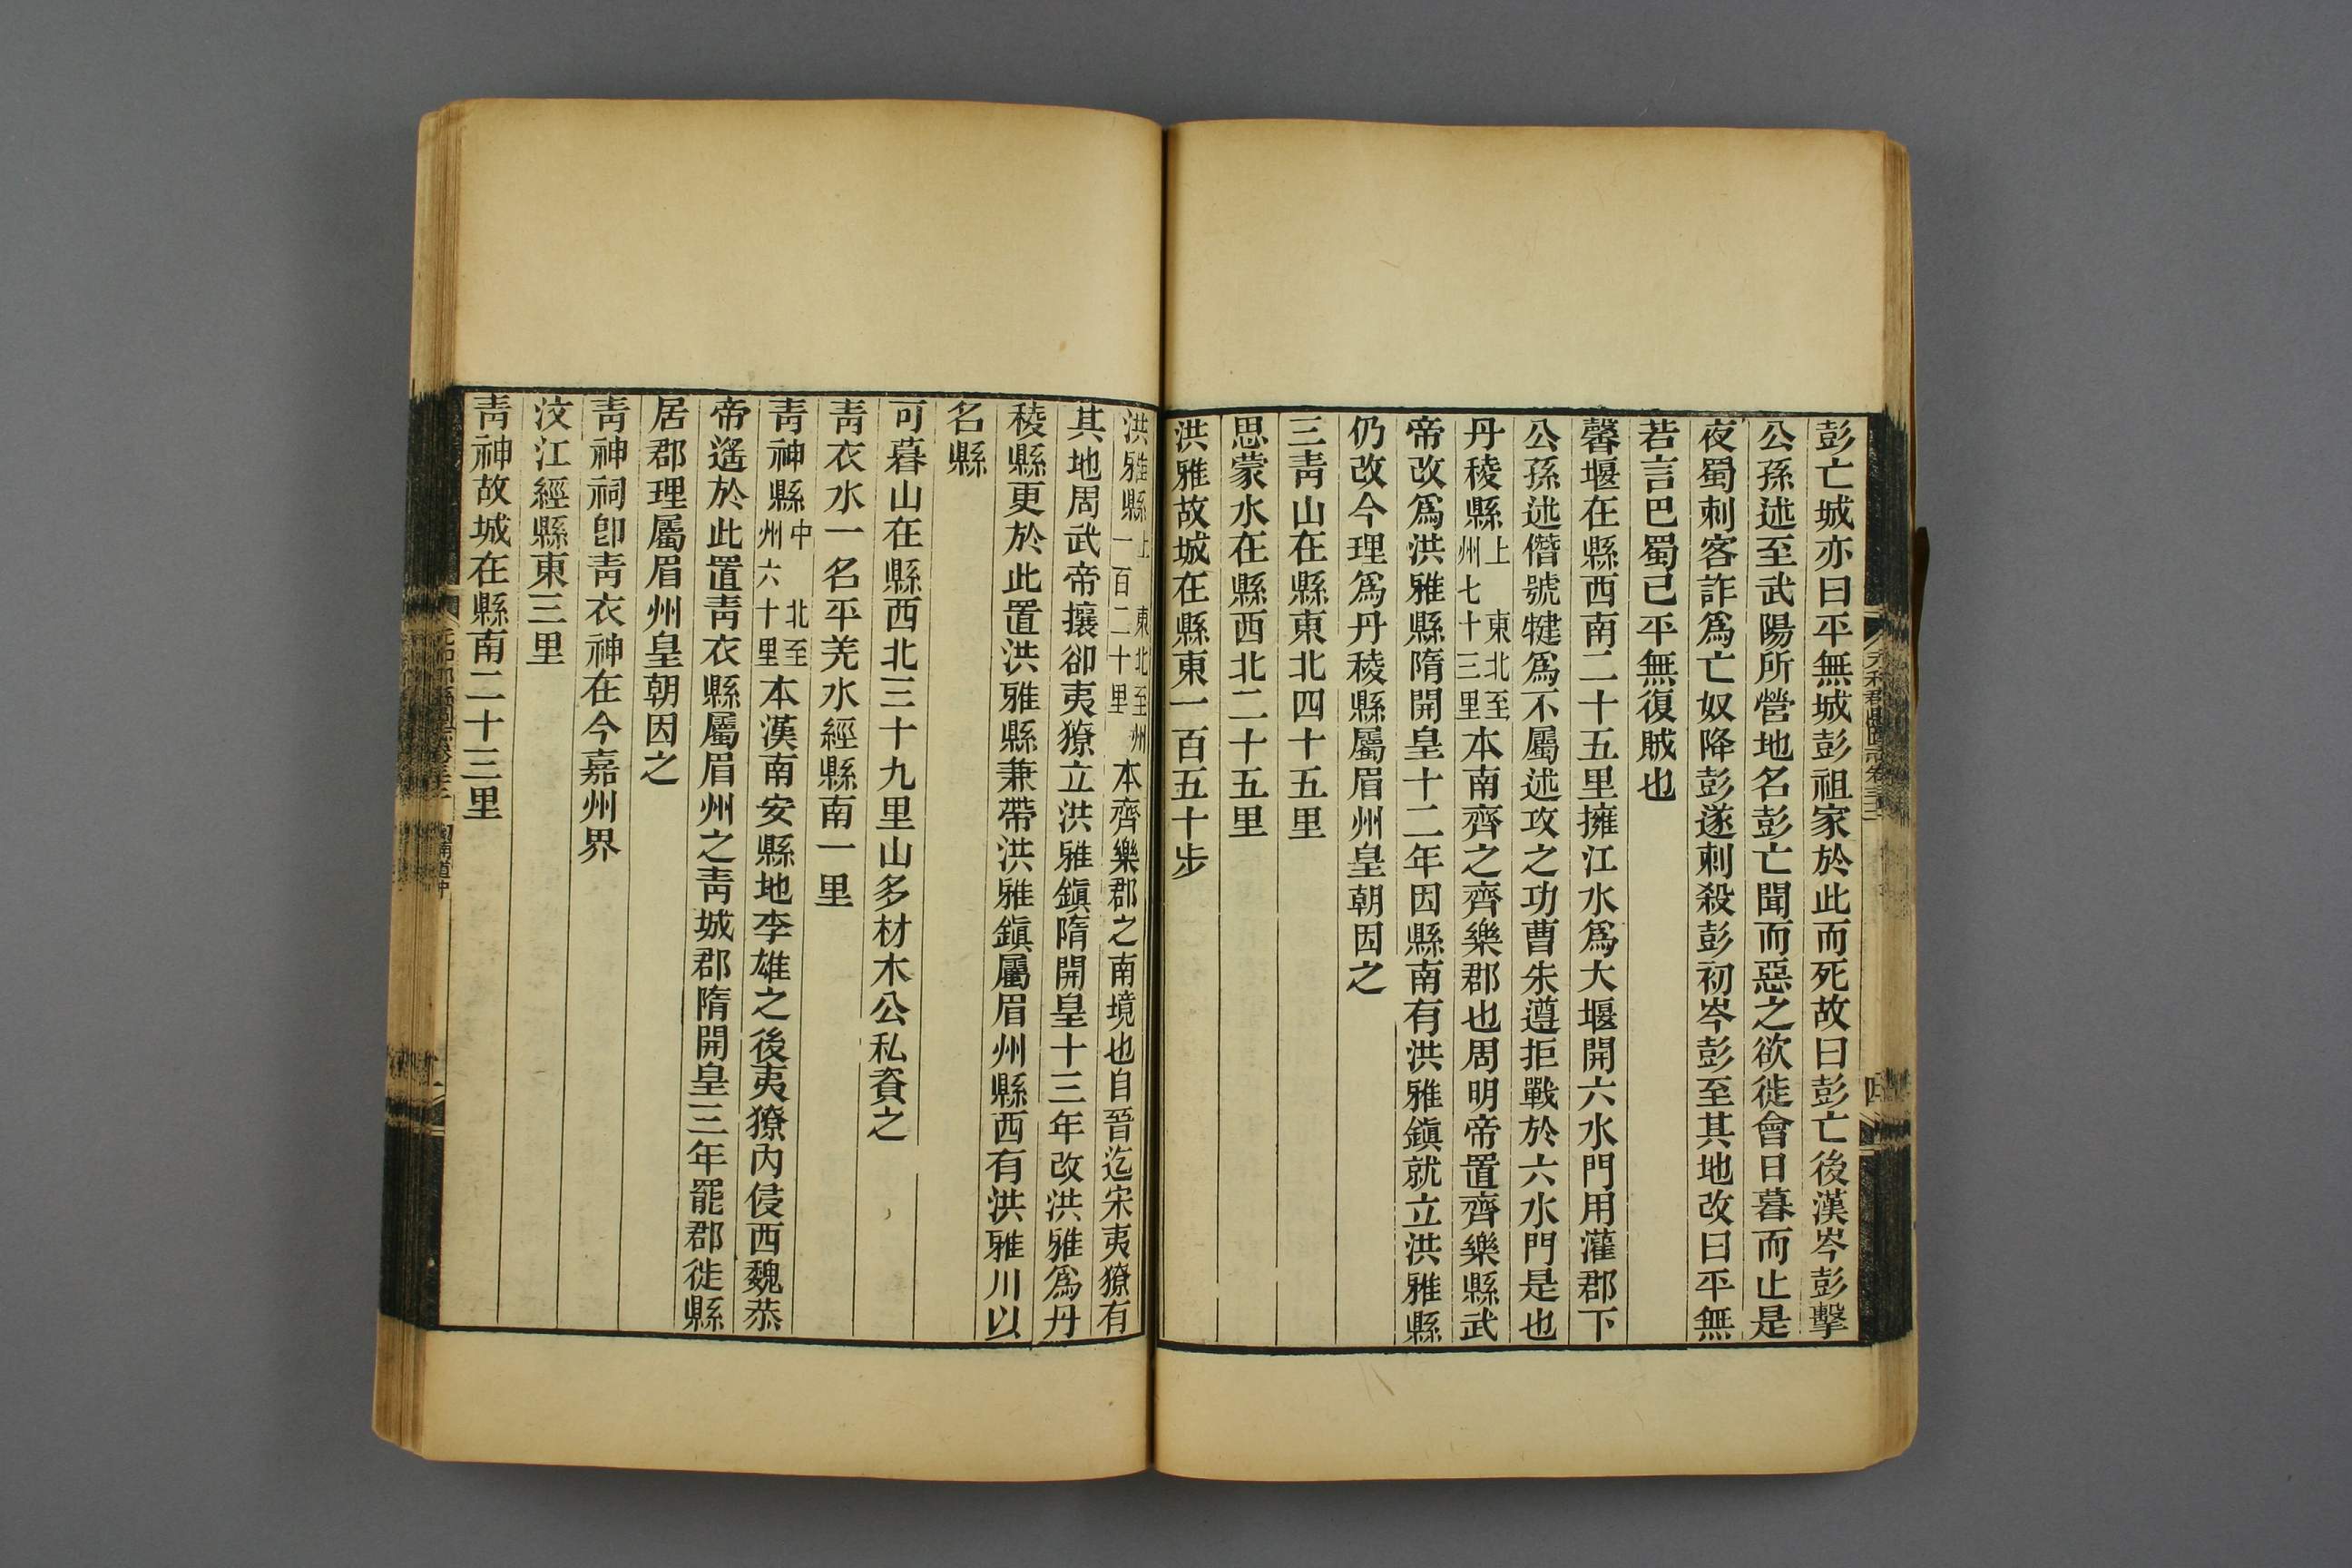 彭亡城亦曰平無城彭祖家於此而死故曰彭亡後漢岑彭擊
公孫述至武陽所營地名彭亡聞而惡之欲徙會日暮而止是
夜蜀刺客詐爲亡奴降彭遂刺殺彭初岑彭至其地改曰平無
若言巴蜀已平無復賊也
馨堰在縣西南二十五里擁江水爲大堰開六水門用灌郡下
公孫述僭號犍爲不屬述攻之功曹朱遵拒戰於六水門是也
丹稜縣上 東北至州七十三里本南齊之齊樂郡也周明帝置齊樂縣武
帝改爲洪雅縣隋開皇十二年因縣南有洪雅鎮就立洪雅縣
仍改今理爲丹稜縣屬眉州皇朝因之
三青山在縣東北四十五里
思蒙水在縣西北二十五里
洪雅故城在縣東一百五十步
洪雅縣上 東北至州一百二十里本齊樂郡之南境也自晉迄宋夷獠有
其地周武帝攘卻夷獠立洪雅鎮隋開皇十三年改洪雅爲丹
稜縣更於此置洪雅縣兼帶洪雅鎮屬眉州縣西有洪雅川以
名縣
可暮山在縣西北三十九里山多材木公私資之
青衣水一名平羌水經縣南一里
青神縣中 北至州六十里本漢南安縣地李雄之後夷獠內侵西魏恭
帝遙於此置青衣縣屬眉州之青城郡隋開皇三年罷郡徙縣
居郡理屬眉州皇朝因之
青神祠卽青衣神在今嘉州界
汶江經縣東三里
青神故城在縣南二十三里